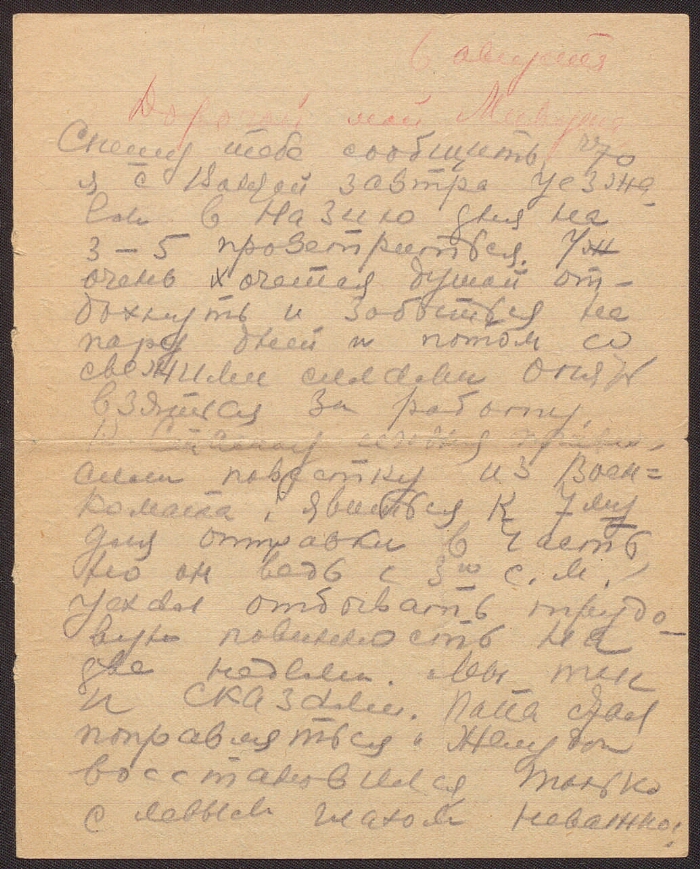 6 августа
Дорогой мой
Спешу тебе сообщить, что
я с Валей завтра уезжа-
ем в Назию дня на
3 – 5 проветриться. Уж
очень хочется душой от-
дохнуть и забыться на
пару дней и потом со
свежими силами опять
взяться за работу.
сили повестку из Воен=
комата, явиться к 7му
для отправки в часть
Но он ведь с 3го с.м.
уехал отбывать трудо-
вую повинность на
две недели. Мы так
и сказали. Папа стал
поправляться. Желудок
восстановился только
с левым глазом неважно!